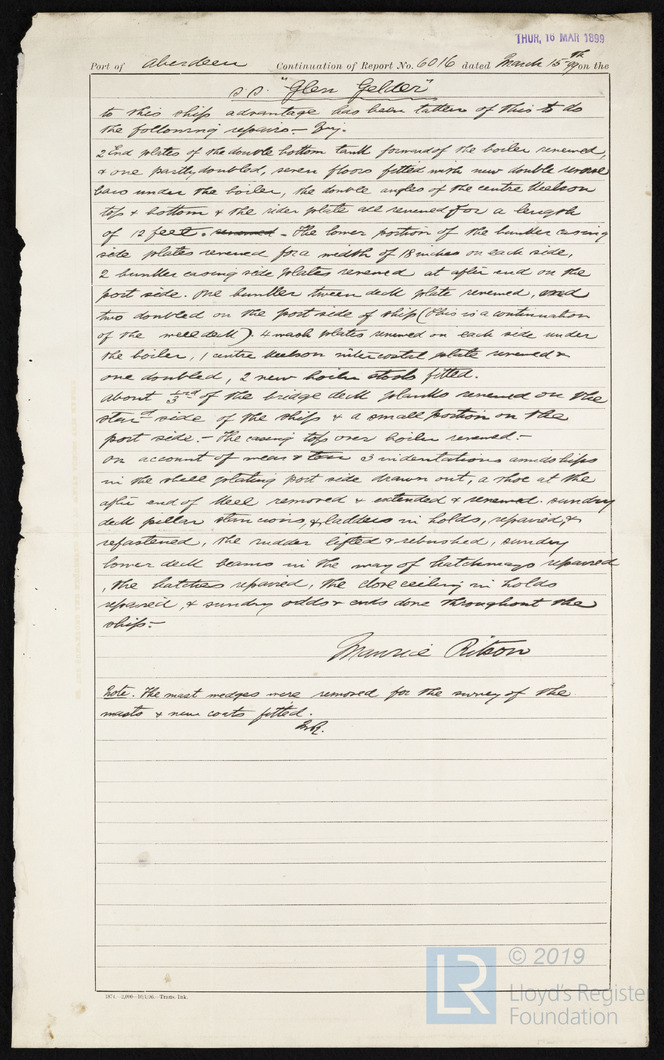 THUR, 16 MAR 1899
Port of Aberdeen Continuation of Report No. 6016 dated March 15th 99 on the
S.S. "Glen Gelder"
to this ship advantage has been taken of this to do
the following repairs – Viz.
2 End plates of the double bottom tank forward of the boiler renewed,
& one partly doubled, seven floors fitted with new double reverse
bars under the boiler, the double angles of the centre keelson
top & bottom & the rider plate all renewed for a length
of 12 feet. renewed – The lower portion of the bunker casing
side plates renewed for a width of 18 inches on each side,
2 bunker casing side plates renewed at after end on the
port side. One bunker tween deck plate renewed, and
two doubled on the port side of ship (this is a continuation
of the well deck) 4 wash plates renewed on each side under
the boiler, 1 centre keelson intercostal plate renewed &
one doubled, 2 new boiler stools fitted.
About 1/3rd of the bridge deck planks renewed on the
starbd side of the ship & a small portion on the
port side. – The casing top over boiler renewed. –
On account of wear & tear 3 indentations amidships
in the shell plating port side drawn out, a shoe at the
after end of keel removed & extended & renewed. Sundry
deck pillar stancions, & ladders in holds, repaired &
refastened, the rudder lifted & rebushed, sundry
lower deck beams in the way of hatchways repaired
, the hatches repaired, the close ceiling in holds
repaired, & sundry odds & ends done throughout the
ship. –
Maurice Ritson
Note. The mast wedges were removed for the survey of the
masts & new coats fitted.
M.R.
1874–2,000–10/1/96–Trans. Ink.
LR
© 2019
Lloyd's Register
Foundation